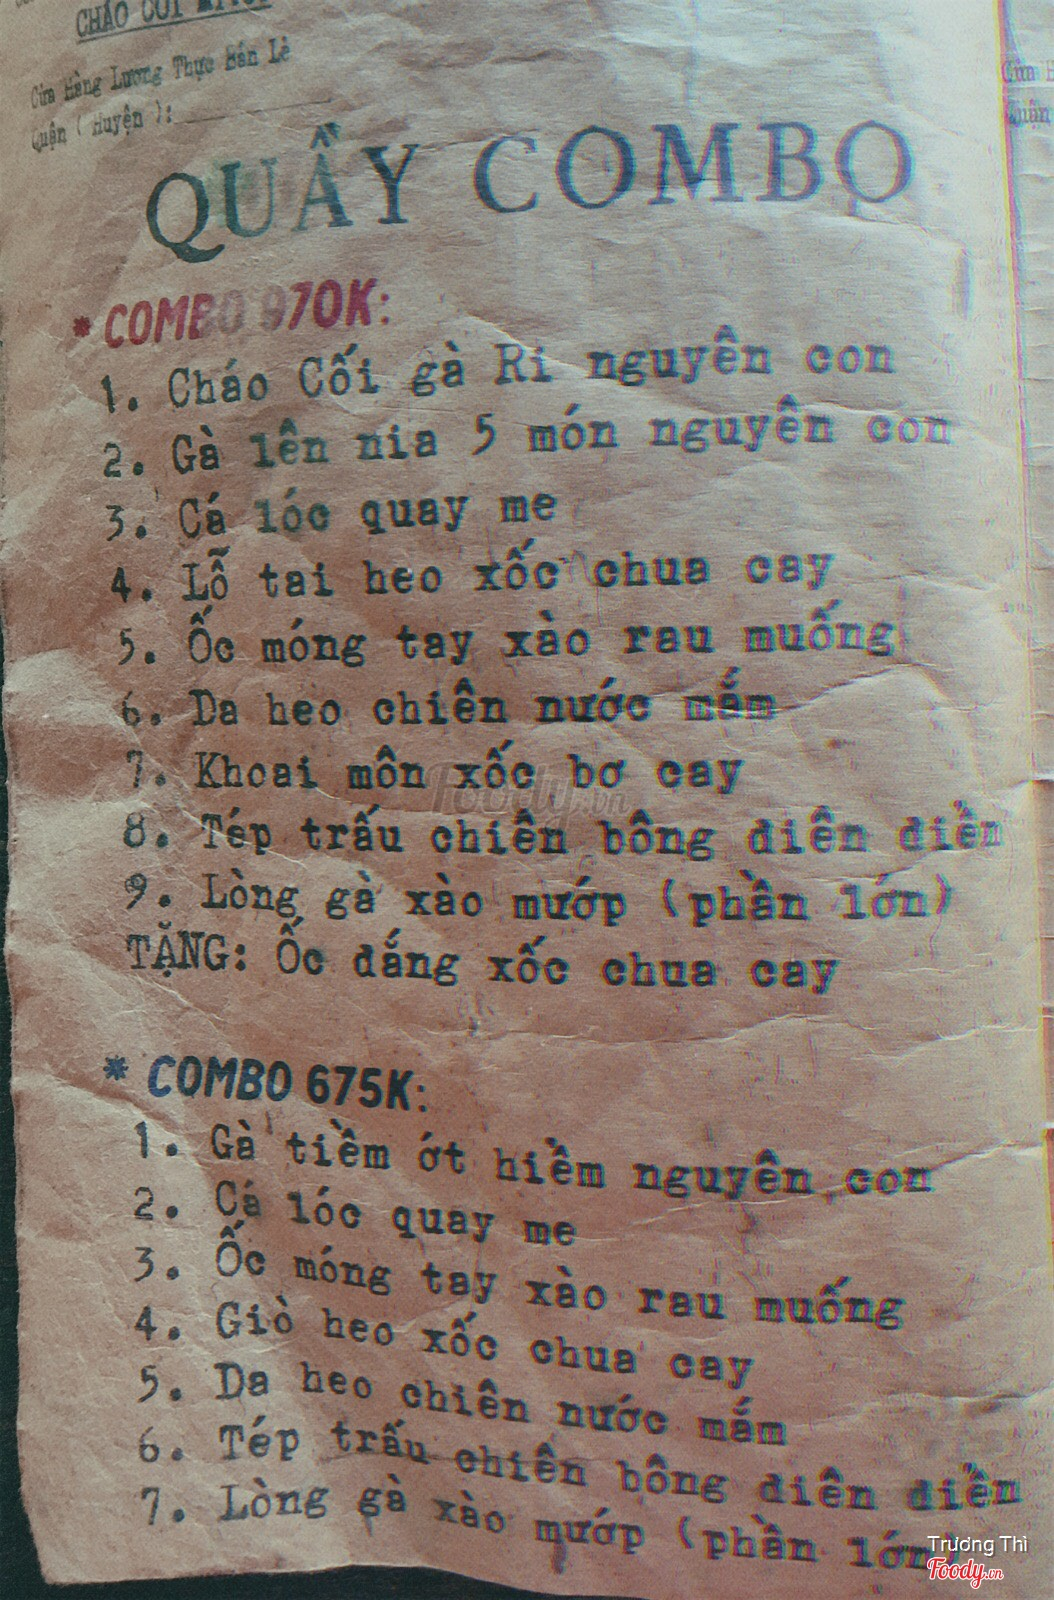 CHÁO CỐI
Cửa Hàng Lương Thực Bán Lẻ
Quận ( Huyện ):
QUẦY COMBO
* COMBO 970K:
1. Cháo Cối gà Ri nguyên con
2. Gà lên nia 5 món nguyên con
3. Cá lóc quay me
4. Lỗ tai heo xốc chua cay
5. Ốc móng tay xào rau muống
6. Da heo chiên nước mắm
7. Khoai môn xốc bơ cay
8. Tép trấu chiên bông điên điển
9. Lòng gà xào mướp (phần lớn)
TẶNG: Ốc đắng xốc chua cay
* COMBO 675K:
1. Gà tiềm ớt hiểm nguyên con
2. Cá lóc quay me
3. Ốc móng tay xào rau muống
4. Giò heo xốc chua cay
5. Da heo chiên nước mắm
6. Tép trấu chiên bông điên điển
7. Lòng gà xào mướp (phần lớn)
Cửa H
Quận
Foody.vn
Trương Thì
Foody.vn